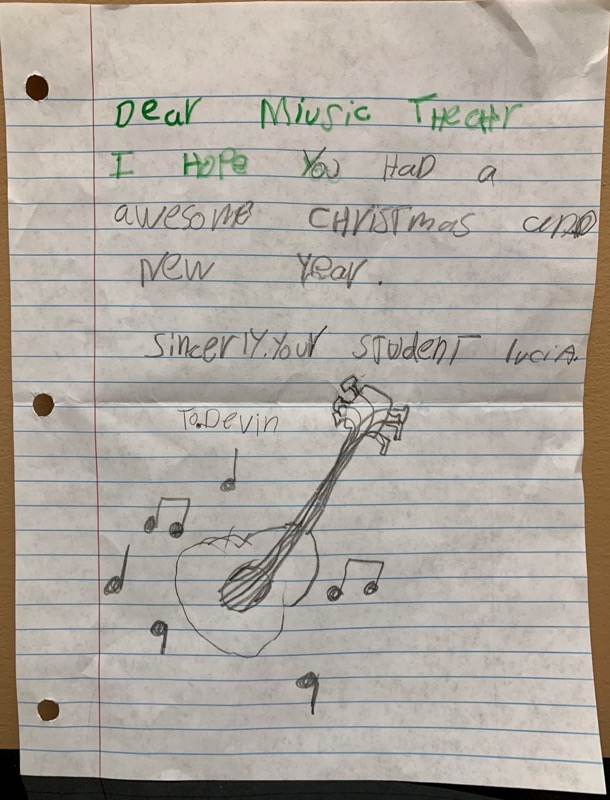 Dear Miusic THeatr
I HOPe You HaD a
awesome CHRISTmas and
New Year.
SincerlY.Your STudenT luciA.
To.Devin